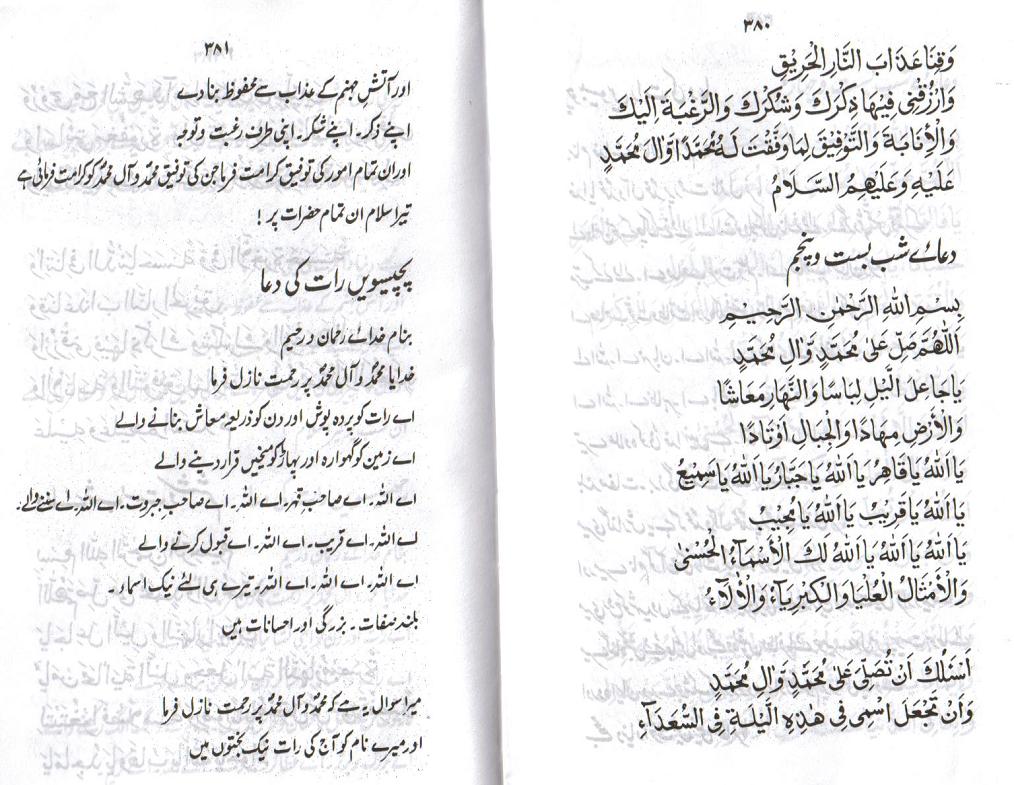 ۳۸۰
وَقِنَا عَذَابَ النَّارِ الْحَرِيْقِ
وَارْزُقْنِى فِيْهَا ذِكْرَكَ وَشُكْرَكَ وَالرَّغْبَةَ اِلَيْكَ
وَالْاِنَابَةَ وَالتَّوْفِيْقَ لِمَا وَفَّقْتَ لَهُ مُحَمَّدًا وَّاٰلَ مُحَمَّدٍ
عَلَيْهِ وَعَلَيْهِمُ السَّلَامُ
دعائے شب بست و پنجم
بِسْمِ اللهِ الرَّحْمٰنِ الرَّحِيْمِ
اَللّٰهُمَّ صَلِّ عَلٰى مُحَمَّدٍ وَّاٰلِ مُحَمَّدٍ
يَا جَاعِلَ الَّيْلِ لِبَاسًا وَالنَّهَارِ مَعَاشًا
وَالْاَرْضِ مِهَادًا وَالْجِبَالِ اَوْتَادًا
يَا اَللهُ يَا قَاهِرُ يَا اَللهُ يَا جَبَّارُ يَا اَللهُ يَا سَمِيْعُ
يَا اَللهُ يَا قَرِيْبُ يَا اَللهُ يَا مُجِيْبُ
يَا اَللهُ يَا اَللهُ يَا اَللهُ لَكَ الْاَسْمَآءُ الْحُسْنٰى
وَالْاَمْثَالُ الْعُلْيَا وَالْكِبْرِيَآءُ وَالْاٰلَآءُ
اَسْئَلُكَ اَنْ تُصَلِّىَ عَلٰى مُحَمَّدٍ وَّاٰلِ مُحَمَّدٍ
وَاَنْ تَجْعَلَ اسْمِى فِى هٰذِهِ الَّيْلَةِ فِى السُّعَدَآءِ
۳۸۱
اور آتشِ جہنم کے عذاب سے محفوظ بنا دے
اپنے ذکر۔ اپنے شکر۔ اپنی طرف رغبت و توجہ
اور ان تمام امور کی توفیق کرامت فرما جن کی توفیق محمدؐ و آل محمدؐ کو کرامت فرمائی ہے
تیرا سلام ان تمام حضرات پر !
پچیسویں رات کی دعا
بنام خدائے رحمان و رحیم
خدایا محمدؐ و آل محمدؐ پر رحمت نازل فرما
اے رات کو پردہ پوش اور دن کو ذریعہ معاش بنانے والے
اے زمین کو گہوارہ اور پہاڑ کو میخیں قرار دینے والے
اے اللہ۔ اے صاحبِ قہر۔ اے اللہ۔ اے صاحبِ جبروت۔ اے اللہ۔ اے سننے والے۔
اے اللہ۔ اے قریب۔ اے اللہ۔ اے قبول کرنے والے
اے اللہ۔ اے اللہ۔ اے اللہ۔ تیرے ہی لئے نیک اسماء۔
بلند صفات۔ بزرگی اور احسانات ہیں
میرا سوال یہ ہے کہ محمدؐ و آل محمدؐ پر رحمت نازل فرما
اور میرے نام کو آج کی رات نیک بختوں میں